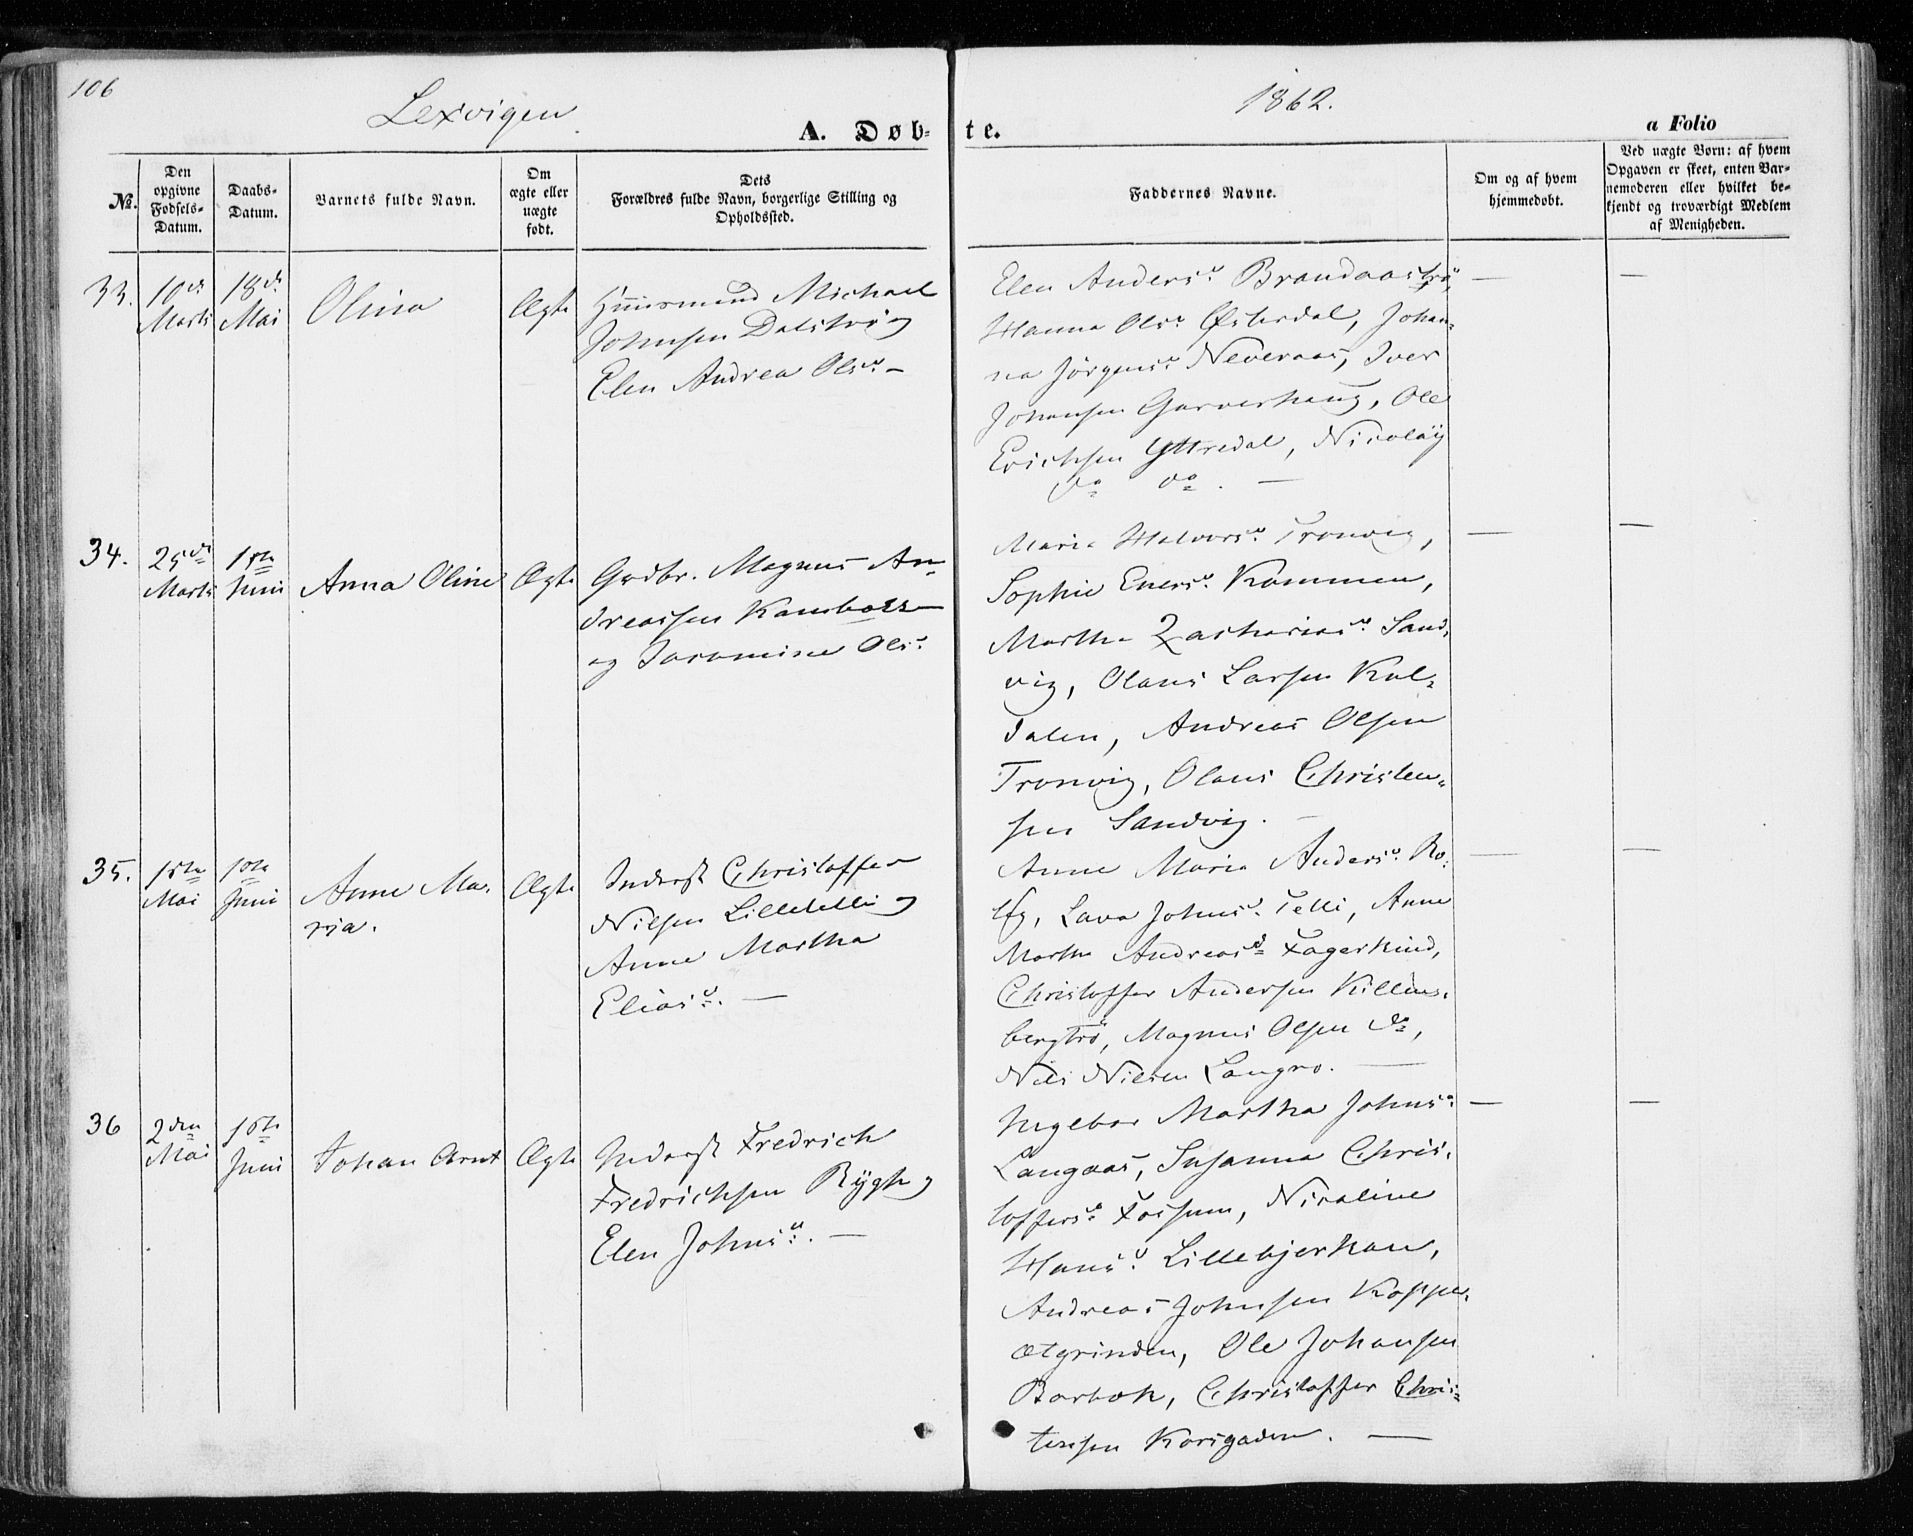 106
Lexvigen
1862.
A. Døb-
te.
a Folio
No.
Den opgivne Fødsels-Datum.
Daabs-Datum.
Barnets fulde Navn.
Om ægte eller uægte født.
Dets Forældres fulde Navn, borgerlige Stilling og Opholdssted.
Faddernes Navne.
Om og af hvem hjemmedøbt.
Ved uægte Børn: af hvem Opgaven er skeet, enten Barnemoderen eller hvilket bekjendt og troværdigt Medlem af Menigheden.
33.
10de Marts
18de Mai
Olina
Ægte
Huusmand Michael
Johnsen Dalstrø og
Elen Andrea Olsd. –
Elen Andersd. Brandaastrø,
Hanna Olsd. Østerdal, Johan-
na Jørgensd. Neveraas, Iver
Johansen Garverhaug, Ole
Erichsen Yttredal, Nicolaÿ
do do. —
—
—
34.
25de Marts
1ste Juni
Anna Oline
Ægte
Grdbr. Magnus An-
dreassen
og Olsd.
Maria Halvorsd. Tronvig,
Sophie Enersd. Kammen,
Martha Zachariasd. Sand-
vig, Olaus Larsen Kal-
dalen, Andreas Olsen
Tronvig, Olaus Christen-
sen Sandvig. —
—
—
35.
1ste Mai
1ste Juni
Anne Ma-
ria.
Ægte
Inderst Christoffer
Nilsen Lilletelli og
Anne Martha
Eliasd. —
Anne Maria Andersd. Ro-
Lava Johnsd. Telli, Anne
Martha Andreasd. Fagerhind,
Christoffer Andersen Killins-
bergtrø, Magnus Olsen do,
Nils Nilsen Langro. —
—
—
36
2den Mai
1ste Juni
Johan Arnt
Ægte
Inderst Fredrich
Fredrichsen Rÿgh og
Elen Johnsd. —
Ingebor Martha Johnsd.
Langaas, Susanna Chris-
toffersd. Fossum, Nicoline
Hansd. Lillebjerkan,
Andreas Johnsen Koppe-
ætgrinden, Ole Johansen
Barbok, Christoffer Chris-
tensen Korsgaden. —
—
—